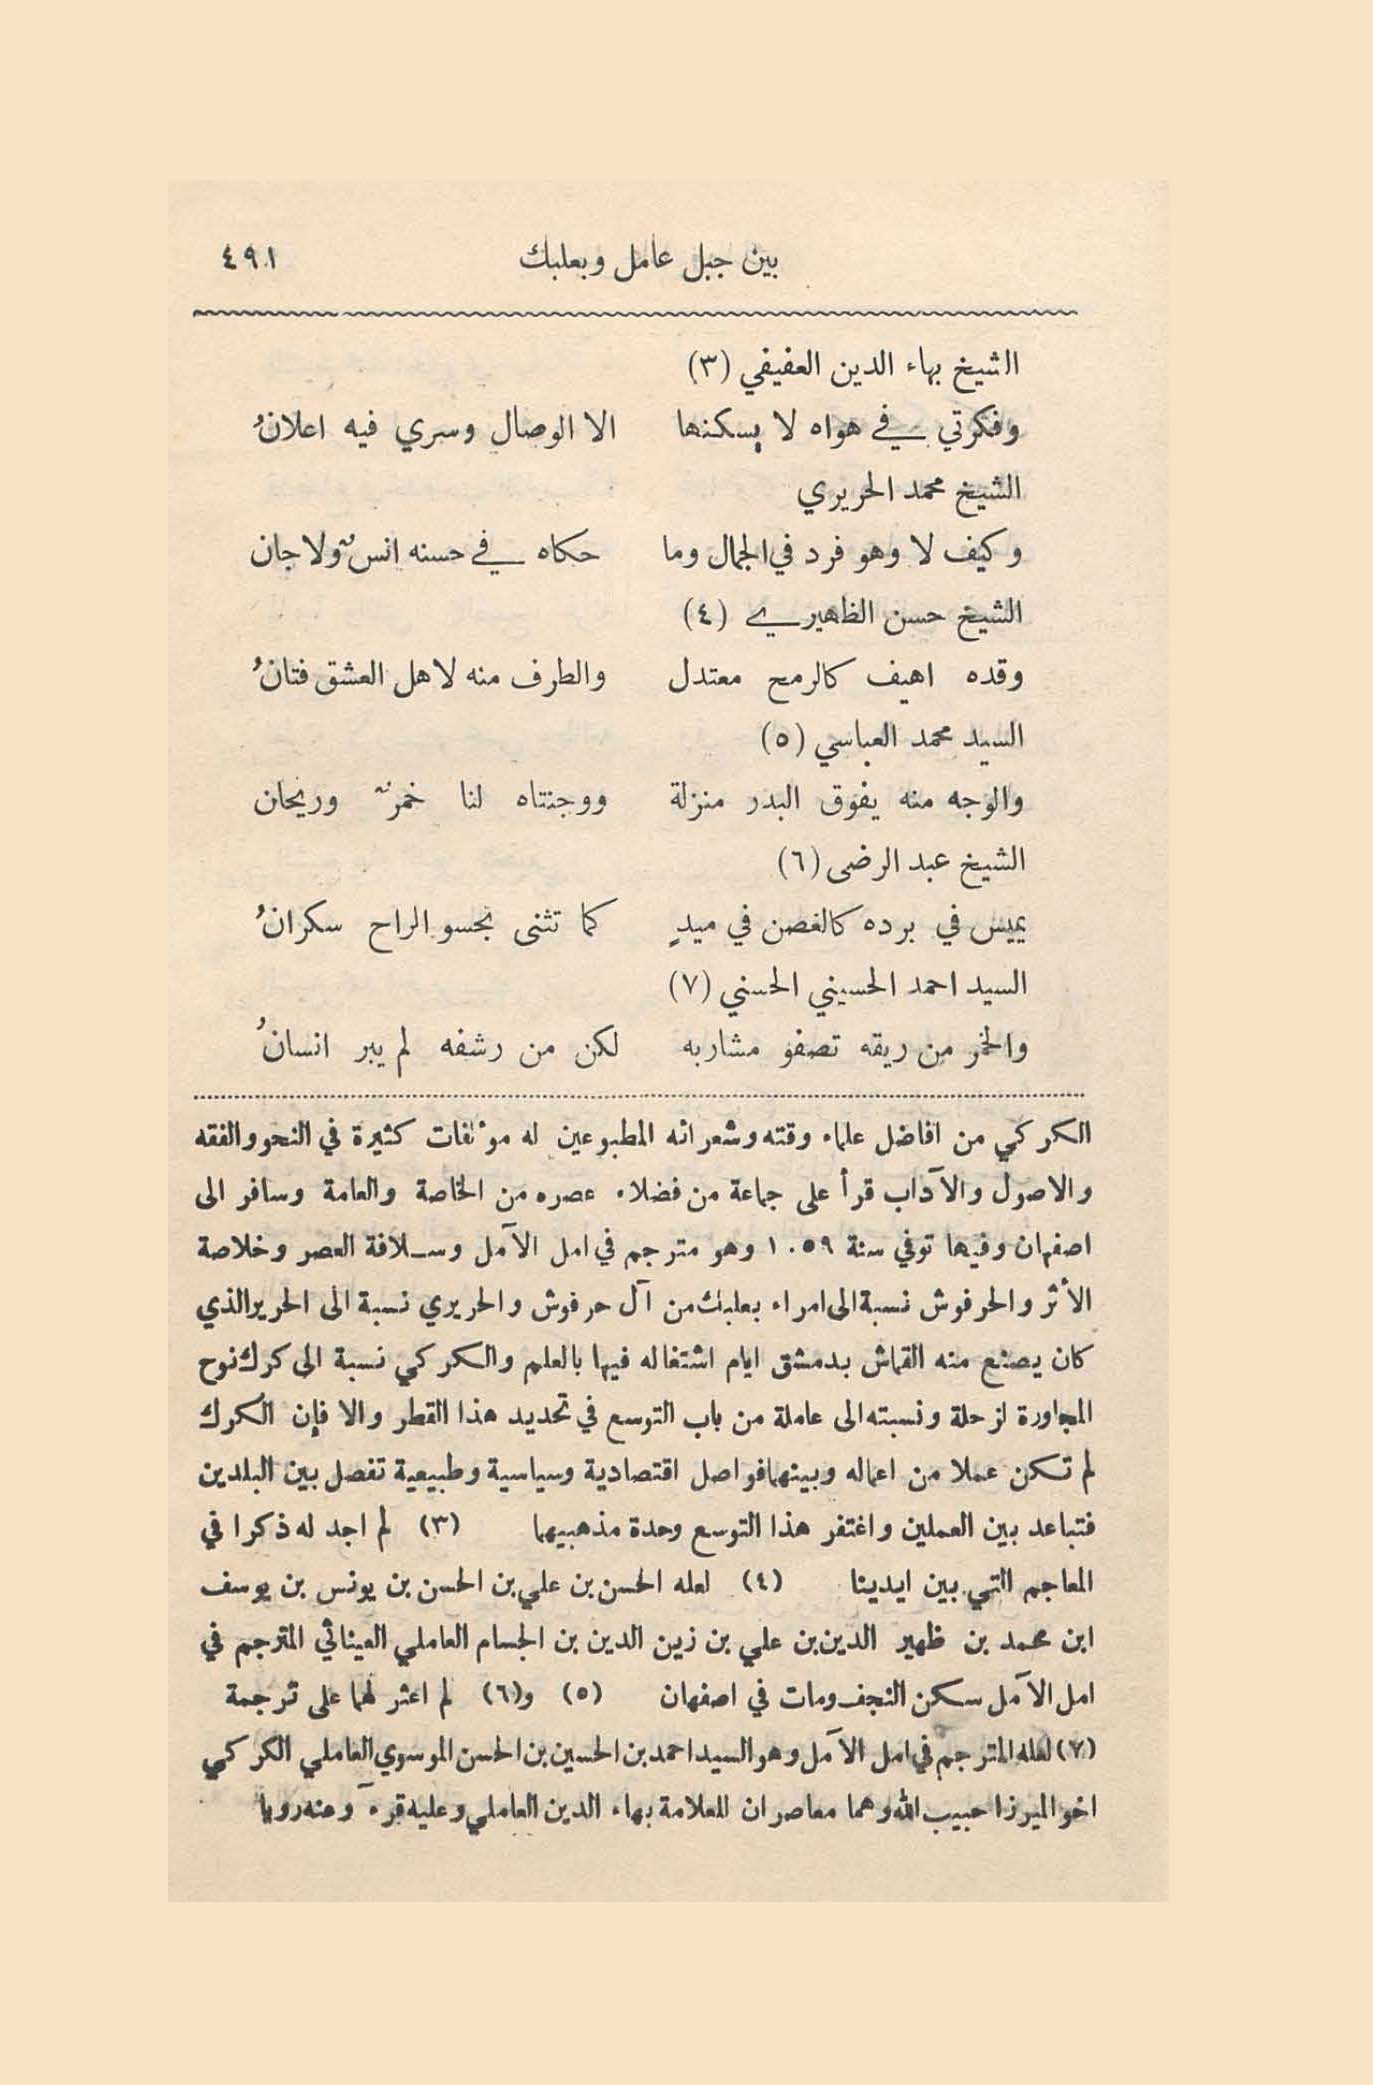 بين جبل عامل وبعلبك ٤٩١
الشيخ بهاء الدين العفيفي (٣)
وفكرتي في هواه لا يسكنها الا الوصال وسري فيه اعلانُ
الشيخ محمد الحريري
وكيف لا وهو فرد في الجمال وما حكاه في حسنه انسٌ ولا جان
الشيخ حسن الظاهيري (٤)
وقده اهيف كالرمح معتدل والطرف منه لاهل العشق فتانُ
السيد محمد العباسي (٥)
والوجه منه يفوق البدر منزلة ووجنتاه لنا خمرٌ وريحان
الشيخ عبد الرضى (٦)
يميس في برده كالغصن في ميدٍ كما تثنى بحسو الراح سكرانُ
السيد احمد الحسيني الحسني (٧)
والخمر من ريقه تصفو مشاربه لكن من رشفه لم يبر انسانُ
الكركي من افاضل علماء وقته وشعرائه المطبوعين له مؤلفات كثيرة في النحو والفقه
والاصول والآداب قرأ على جماعة من فضلاء عصره من الخاصة والعامة وسافر الى
اصفهان وفيها توفي سنة ١٠٥٩ وهو مترجم في امل الآمل وسلافة العصر وخلاصة
الأثر والحرفوش نسبة الى امراء بعلبك من آل حرفوش والحريري نسبة الى الحرير الذي
كان يصنع منه القماش بدمشق ايام اشتغاله فيها بالعلم والكركي نسبة الى كرك نوح
المجاورة لزحلة ونسبته الى عاملة من باب التوسع في تحديد هذا القطر والا فإن الكرك
لم تكن عملا من اعماله وبينهما فواصل اقتصادية وسياسية وطبيعية تفصل بين البلدين
فتباعد بين العملين واغتفر هذا التوسع وحدة مذهبيهما (٣) لم اجد له ذكرا في
المعاجم التي بين ايدينا (٤) لعله الحسن بن علي بن الحسن بن يونس بن يوسف
ابن محمد بن ظهير الدين بن علي بن زين الدين بن الحسام العاملي العيناثي المترجم في
امل الآمل سكن النجف ومات في اصفهان (٥) و(٦) لم اعثر لهما على ترجمة
(٧) لعله المترجم في امل الآمل وهو السيد احمد بن الحسين بن الحسن الموسوي العاملي الكركي
اخو الميرزا حبيب الله وهما معاصران للعلامة بهاء الدين العاملي وعليه قرءَ وعنه رويا